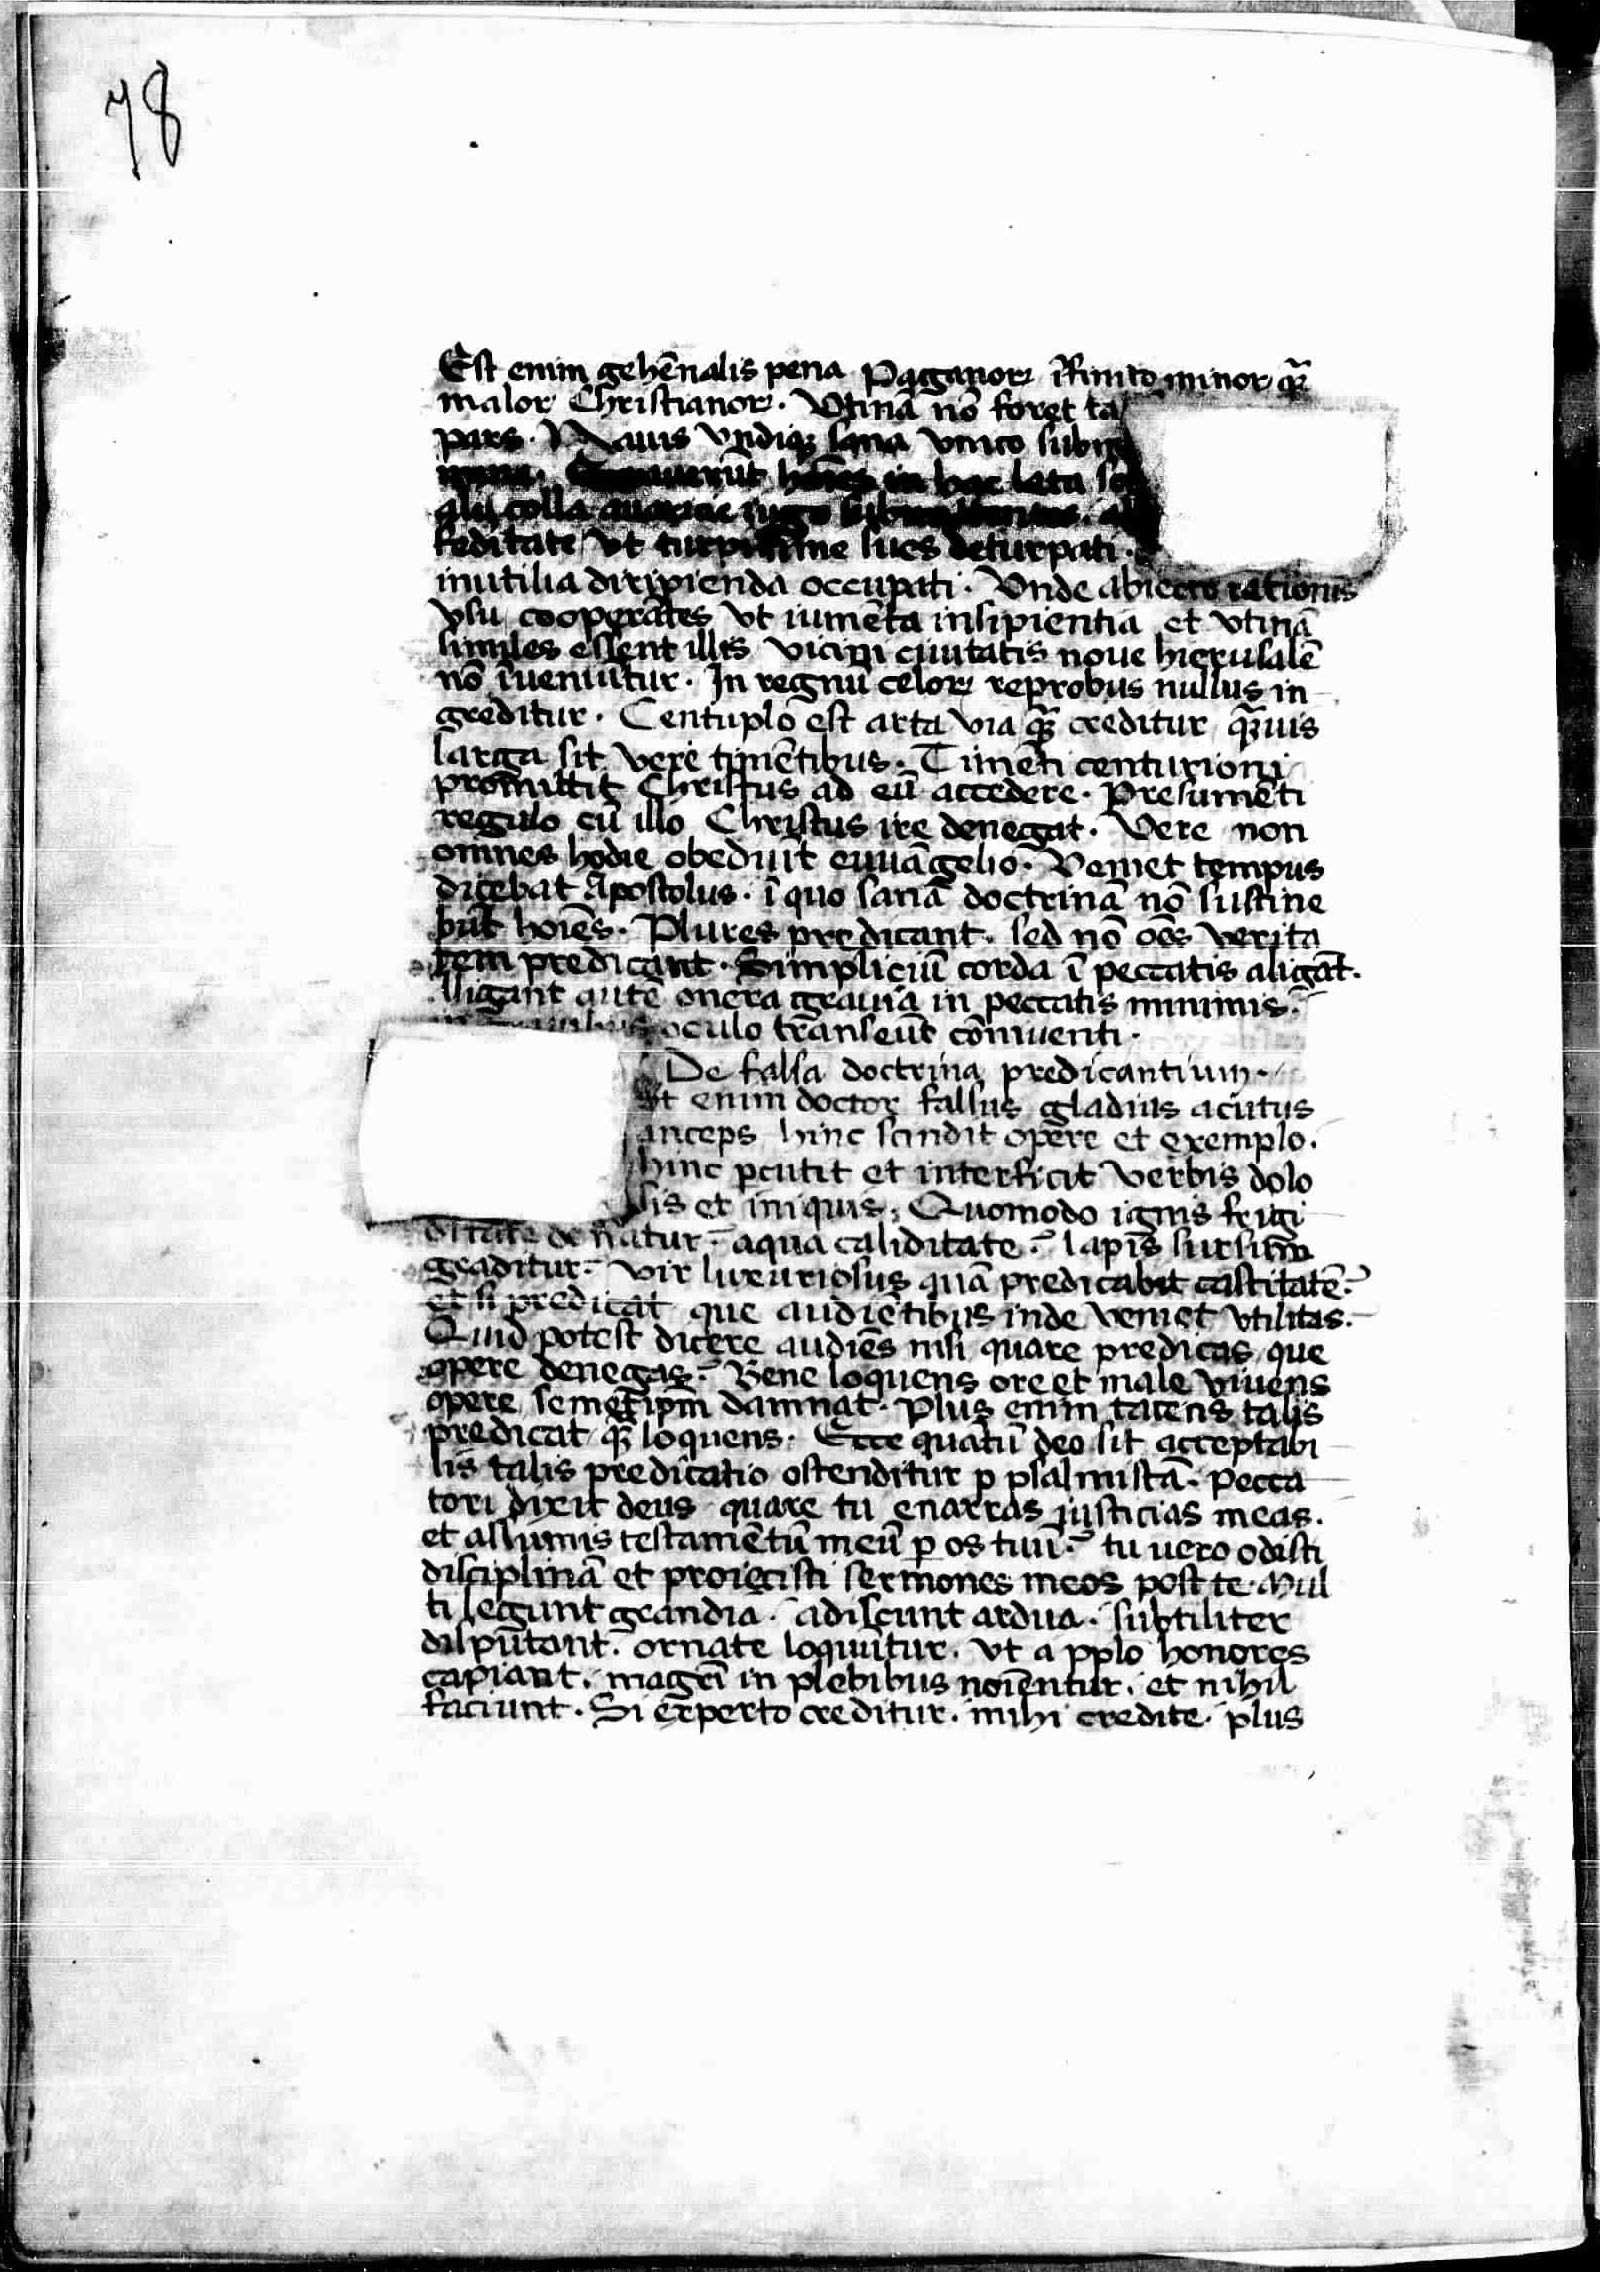 78
Est enim gehēnalis pena Paganoꝝ īfinito minor qꝫ
maloꝝ Christianoꝝ. Vtinā nō foret ta
pars. Nauis vndiqꝫ sana vnico
hoīes in hac lata
colla auaricie iugo
feditate vt turpissime sues deturpati.
inutilia diripienda occupati. Vnde abiecto rationis
vsu cooperātes vt iumēta insipientia et vtinā
similes essent illis vicini ciuitatis noue hierusalē
nō īueniūtur. In regnū celoꝝ reprobus nullus in
greditur. Centuplo est arta via qꝫ creditur qꝫuis
larga sit vere timētibus. Timēti centurioni
promittit Christus ad eū accedere. Presumēti
regulo cū illo Christus ire denegat. Vere non
omnes hodie obediūt euuāgelio. Veniet tempus
dicebat Apostolus. ī quo sanā doctrinā nō sustine
būt hoīes. Plures predicant. sed nō oēs verita
tem predicant. Simpliciū corda ī peccatis aligāt.
Aligant autē onera grauia in peccatis minimis.
oculo trānseūt cōniuenti.
De falsa doctrina predicantium.
St enim doctor falsus gladius acutus
anceps hinc scindit opere et exemplo.
hinc ꝑcutit et interficit verbis dolo
sis et iniquis. Quomodo ignis frigi
ditate aqua caliditate. lapis sursum
graditur. vir luxuriosus quā predicabit castitatē.
et si predicat que audiētibus inde veniet vtilitas.
Quid potest dicere audiēs nisi quare predicas que
opere denegas. Bene loquens ore et male viuens
opere semetipm̄ damnat. Plus enim tacens talis
predicat qꝫ loquens. Ecce quātū deo sit acceptabi
lis talis predicatio ostenditur ꝑ psalmistā. Pecca
tori dixit deus quare tu enarras justicias meas.
et assumis testamētū meū ꝑ os tuū. tu uero odisti
disciplinā et proiecisti sermones meos post te. Mul
ti legunt grandia. adiscunt ardua. subtiliter
disputant. ornate loquūtur. vt a pplo honores
capiant. magrī in plebibus noīentur. et nihil
faciunt. Si experto creditur. mihi credite. plus